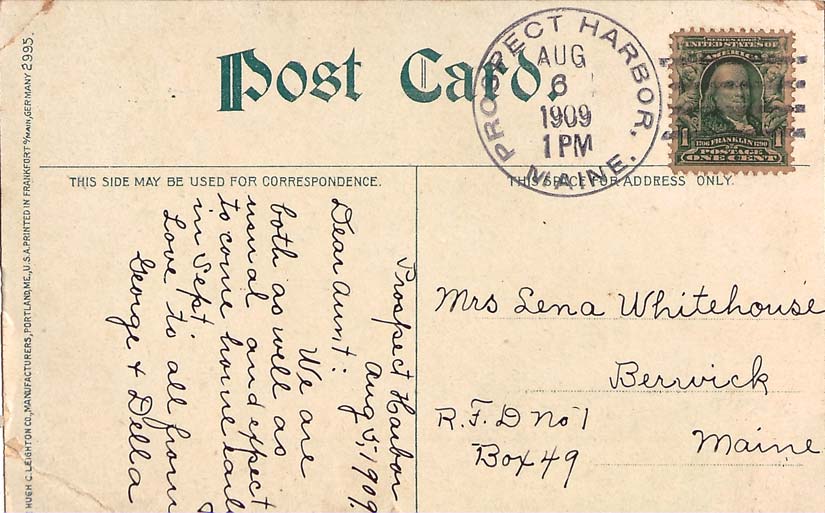 Post Card.
PROSPECT HARBOR,
MAINE.
AUG
6
1909
1 PM
SERIES 1902
UNITED STATES OF
AMERICA
1 1
1706 FRANKLIN 1790
POSTAGE
ONE CENT
THIS SIDE MAY BE USED FOR CORRESPONDENCE.
THIS SPACE FOR ADDRESS ONLY.
HUGH C. LEIGHTON CO., MANUFACTURERS, PORTLAND, ME., U.S.A. PRINTED IN FRANKFORT o/MAIN, GERMANY 2995.
Prospect Harbor
Aug 5, 1909.
Dear Aunt:
We are
both as well as
usual and expect
to come home
in Sept
Love to all from
George & Della
Mrs Lena Whitehouse
Berwick
R.F.D No 1
Maine
Box 49